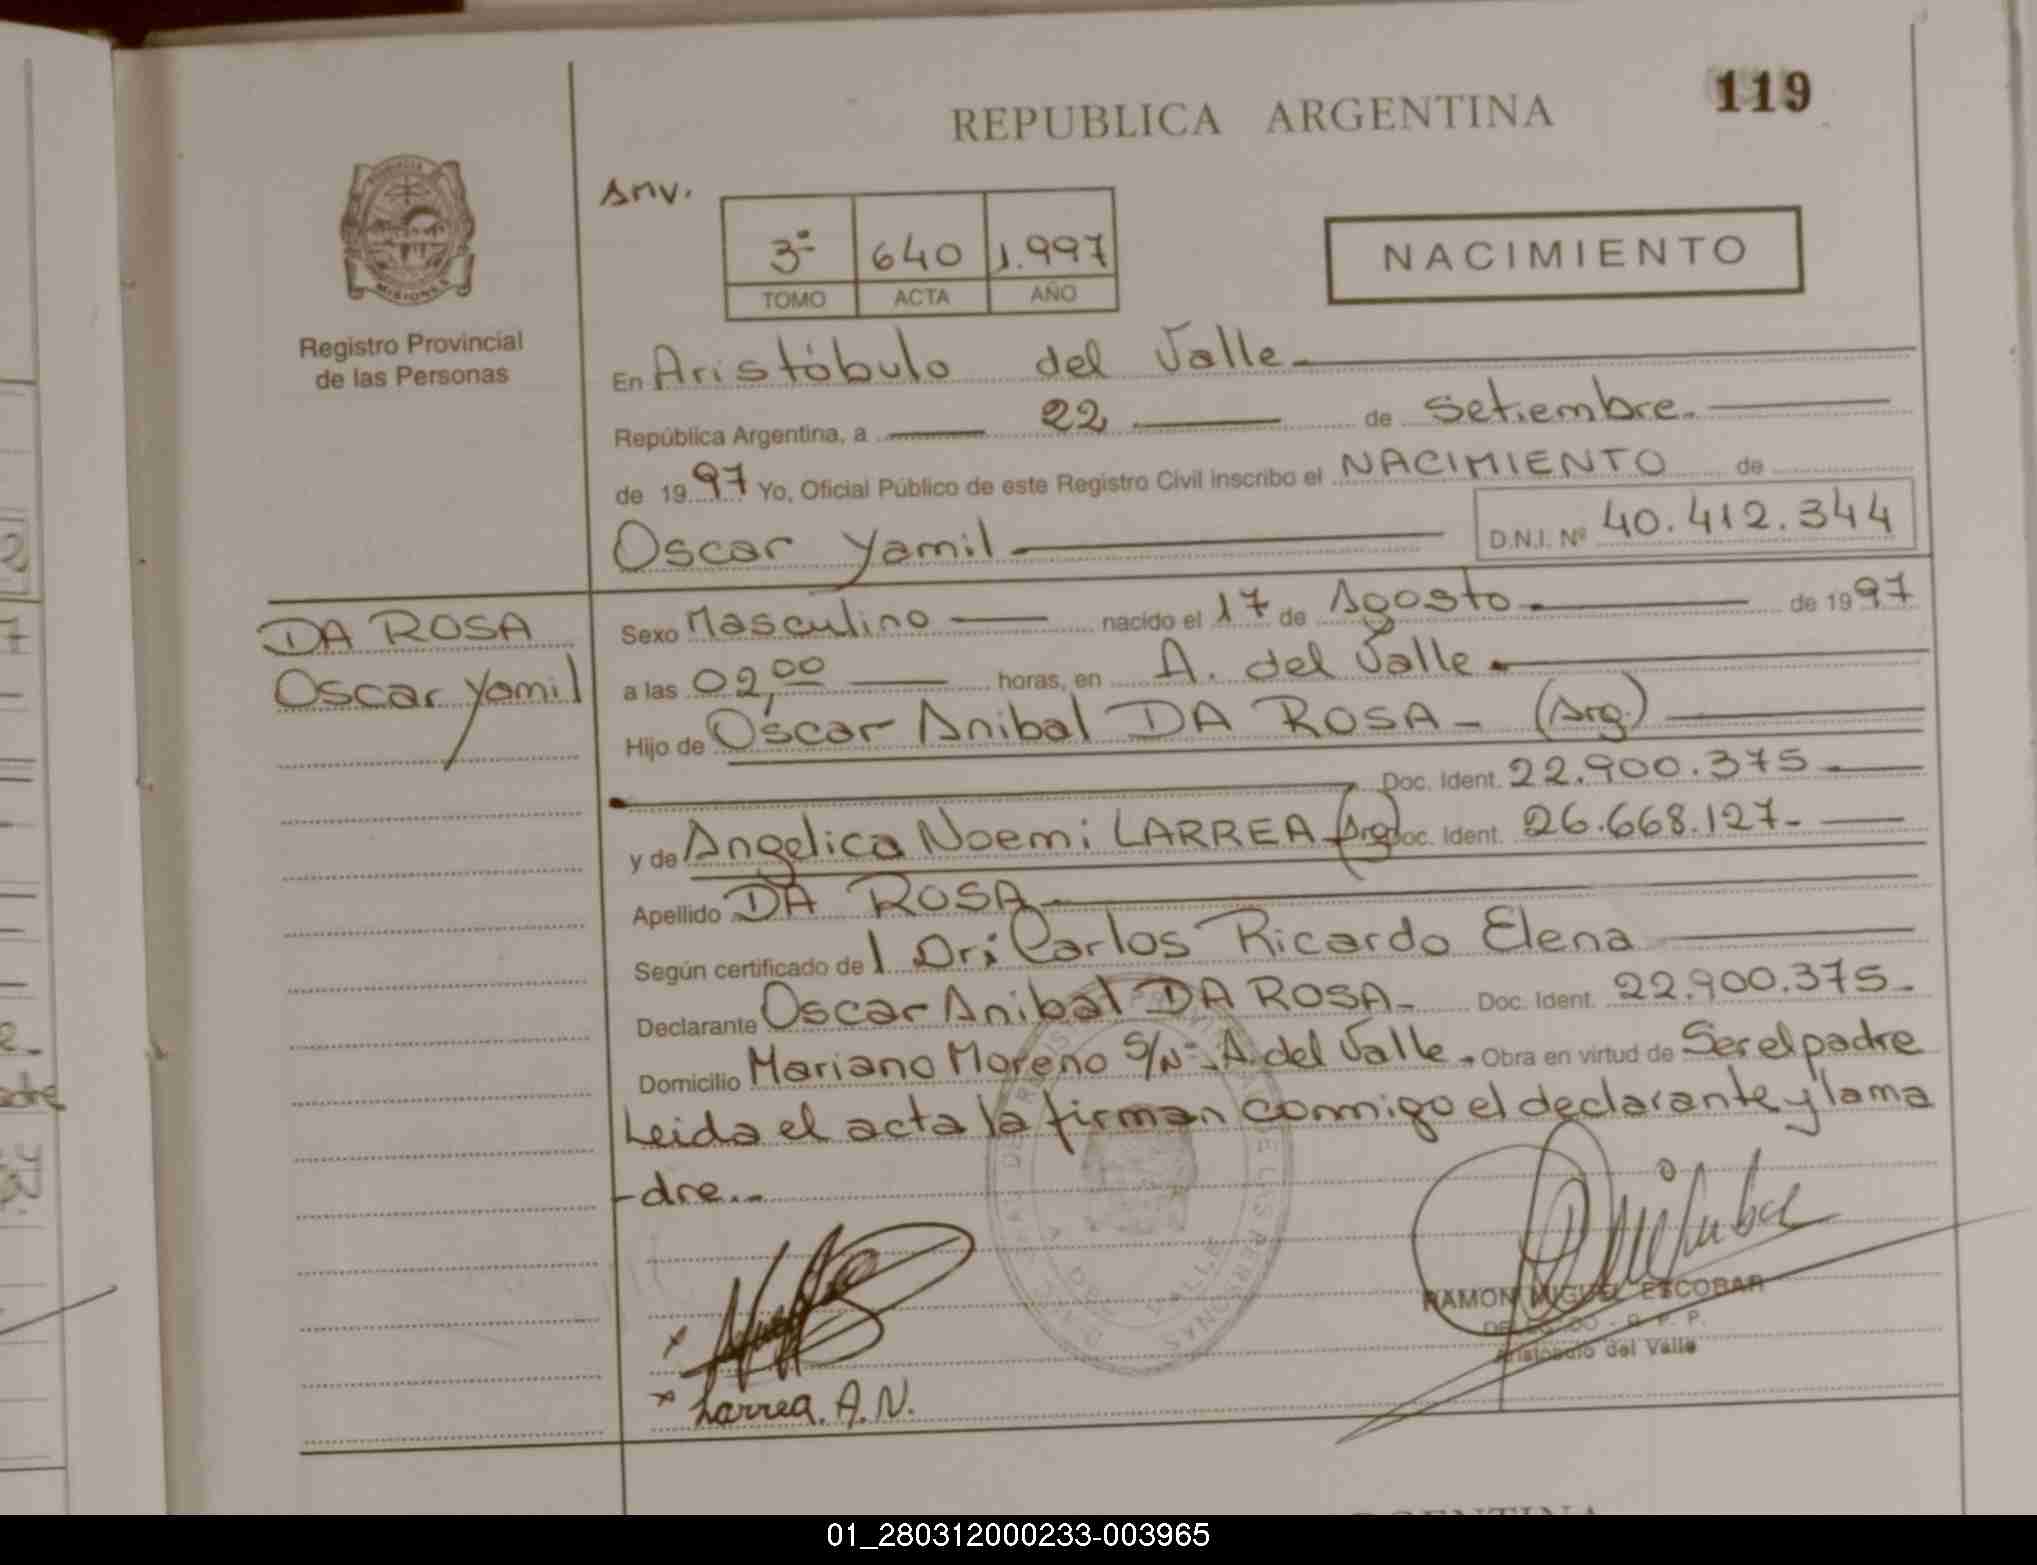 119
REPUBLICA ARGENTINA
Anv.
3ª 640 1.997
TOMO ACTA AÑO
NACIMIENTO
MISIONES
Registro Provincial
de las Personas
En Aristóbulo del Valle
República Argentina, a 22 de Setiembre.
de 1997 Yo, Oficial Público de este Registro Civil inscribo el NACIMIENTO de
Oscar Yamil D.N.I. Nº 40.412.344
DA ROSA
Oscar Yamil
Sexo Masculino nacido el 17 de Agosto de 1997
a las 02,00 horas, en A. del Valle
Hijo de Oscar Anibal DA ROSA - (Arg.)
Doc. Ident. 22.900.375
y de Angelica Noemi LARREA (Arg) Doc. Ident. 26.668.127-
Apellido DA ROSA
Según certificado del Dr: Carlos Ricardo Elena
Declarante Oscar Anibal DA ROSA- Doc. Ident. 22.900.375-
Domicilio Mariano Moreno S/Nº- A. del Valle. Obra en virtud de Ser el padre
Leida el acta la firman conmigo el declarante y la ma
-dre.-
RAMON MIGUEL ESCOBAR
DELEGADO - R. P. P.
Aristobulo del Valle
x
x Larrea. A.N.
01_280312000233-003965